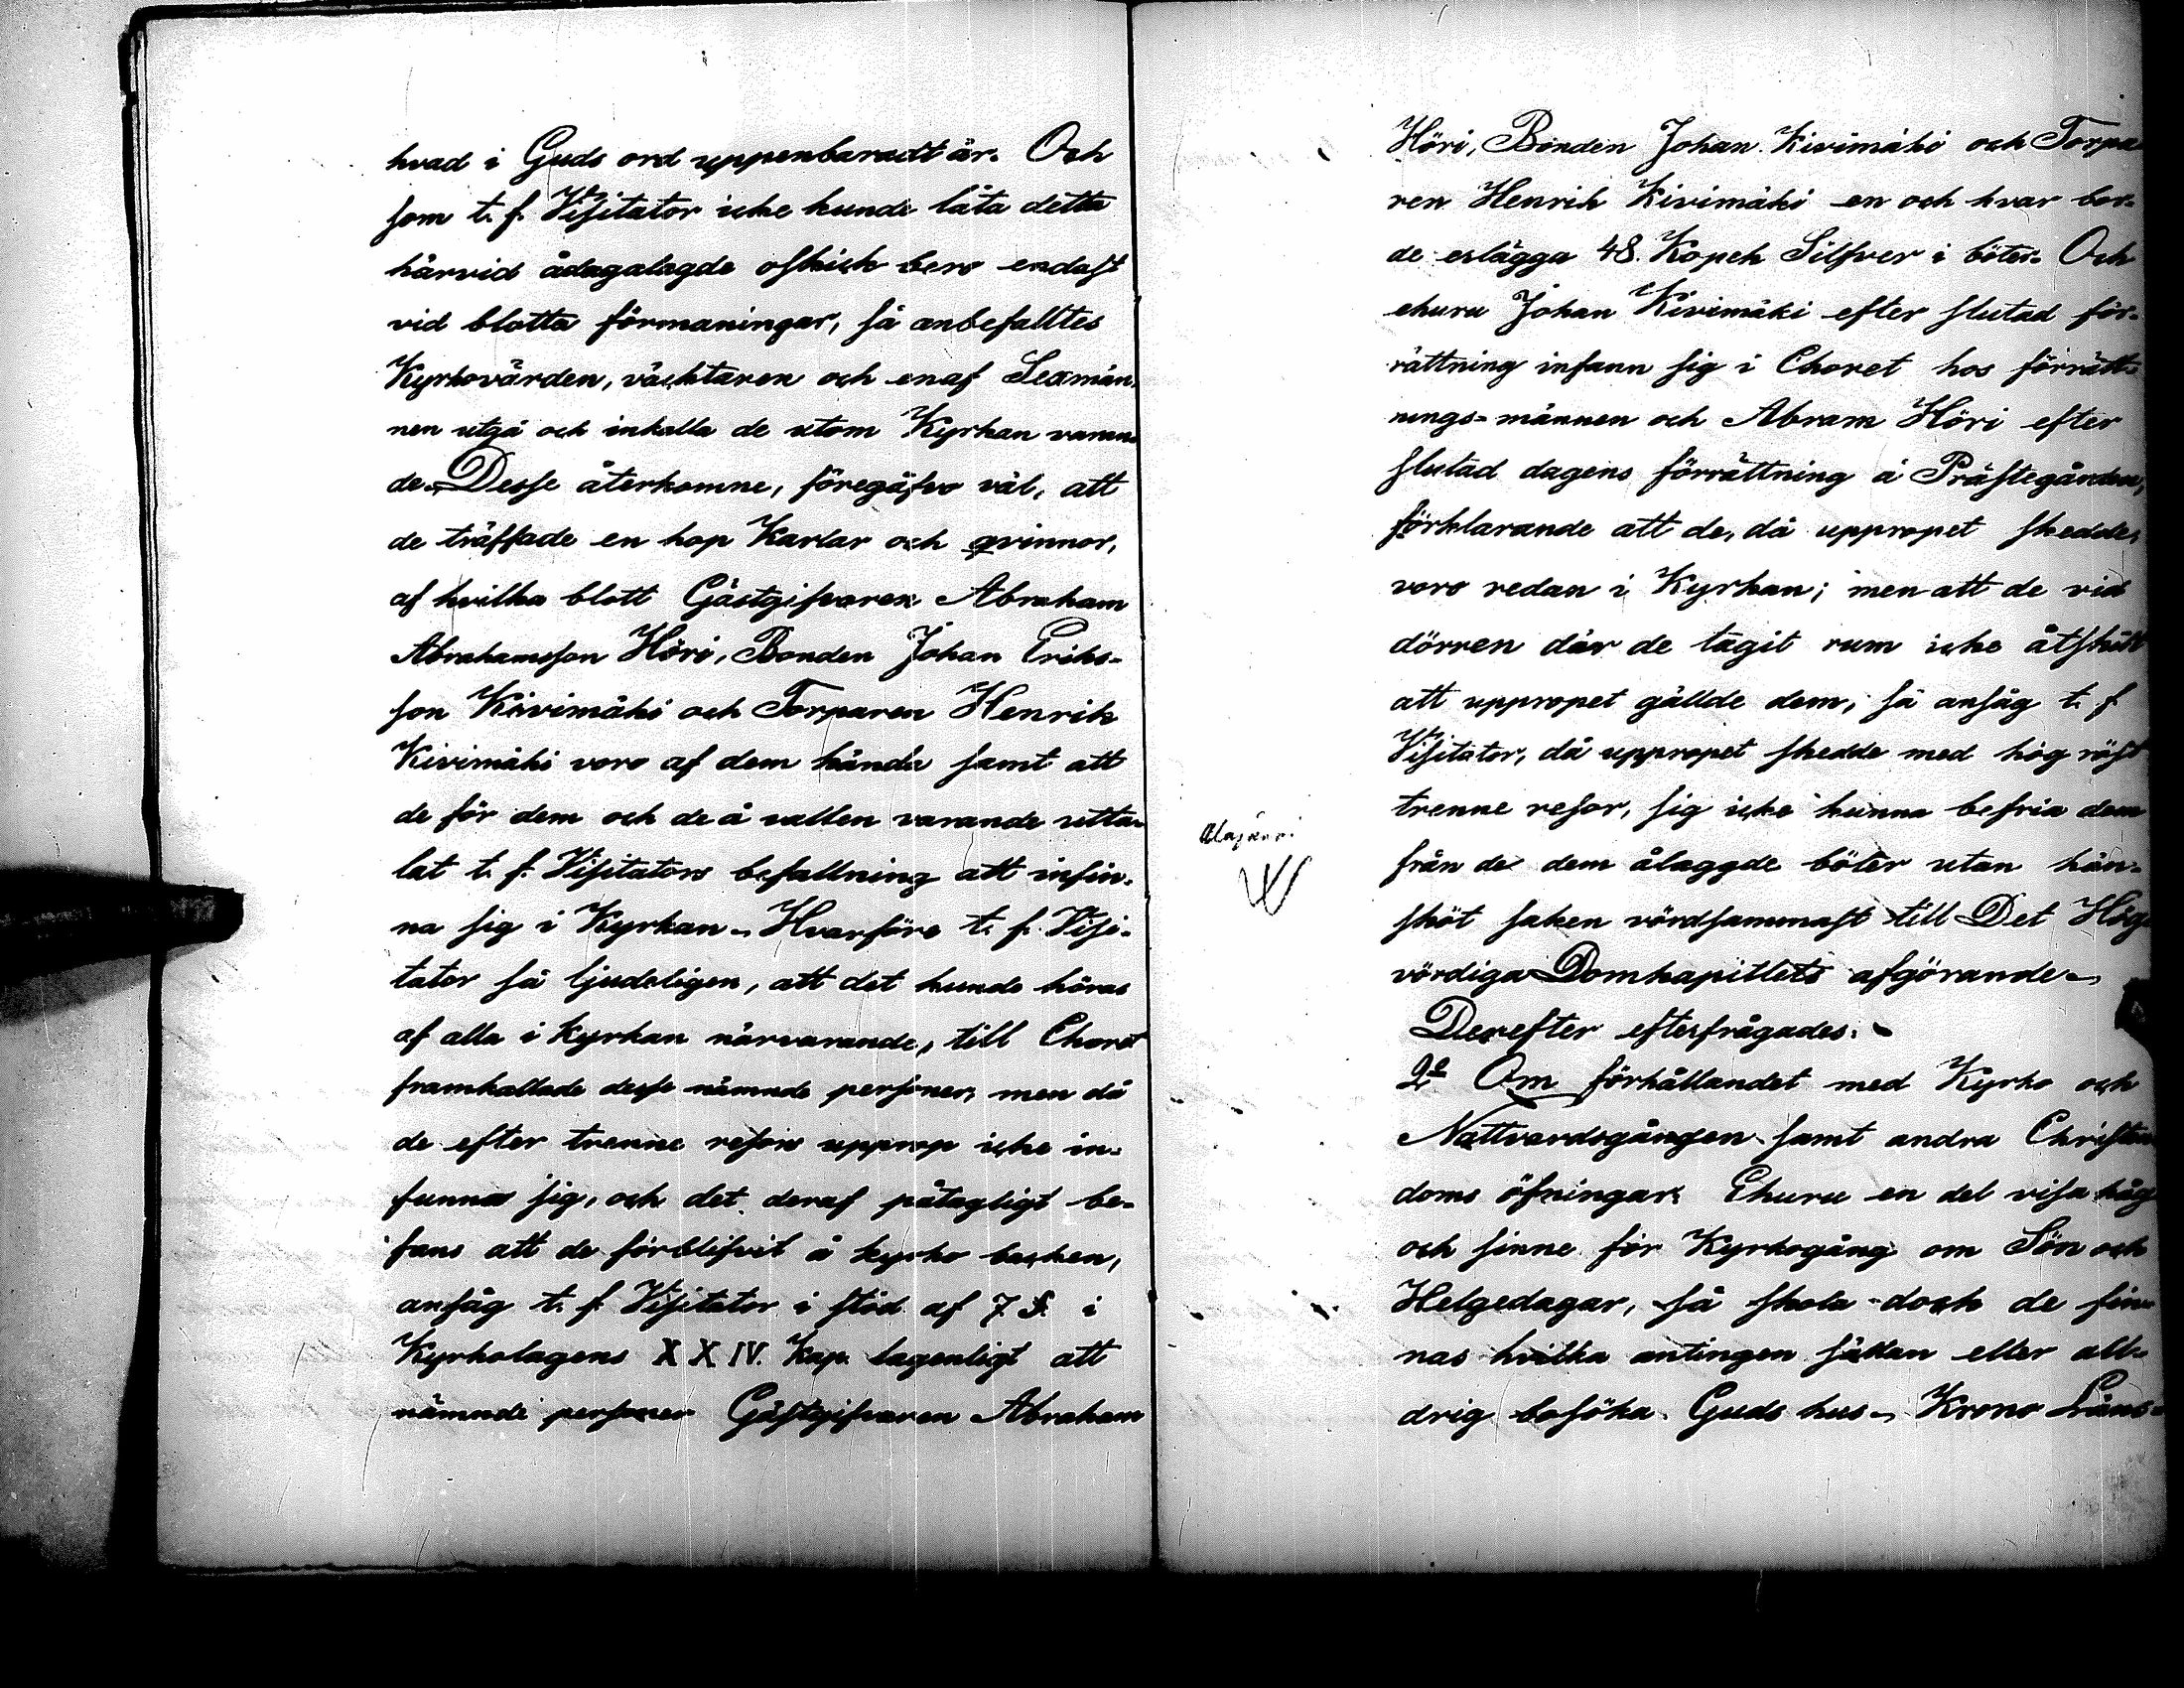 hvad i Guds ord uppenbaradt är. Och
som t. f. Visitator icke kunde låta detta
härvid ådagalagde oskick bero endast
vid blotta förmaningar, så anbefalltes
Kyrkovärden, väcktaren och en af Sexmän,
nen utgå och inkalla de utom Kyrkan varan
de. Desse återkomne, föregåfvo väl, att
de träffade en hop Karlar och qvinnor,
af hvilka blott Gästgifvaren Abraham
Abrahamsson Höri, Bonden Johan Eriks-
son Kivimäki och Torparen Henrik
Kivimäki voro af dem kända samt att
de för dem och de å vallen varande utta-
lat t. f. Visitators befallning att infin-
na sig i Kyrkan. Hvarföre t. f. Visi-
tator så ljudeligen, att det kunde höras
af alla i kyrkan närvarande, till Choret
framkallade desse nämnde personer, men då
de efter trenne resors upprop icke in-
funno sig, och det deraf påtagligt be-
fans att de förblifvit å kyrko backen,
ansåg t. f. Visitator i stöd af 7 §. i
Kyrkolagens XXIV. Kap. lagenligt att
nämnde personer Gästgifvaren Abraham
Höri, Bonden Johan Kivimäki och Torpa
ren Henrik Kivimäki en och hvar bor-
de erlägga 48. Kopek Silfver i böter. Och
ehuru Johan Kivimäki efter slutad för-
rättning infann sig i Choret hos förrätt-
nings-männen och Abram Höri efter
slutad dagens förrättning å Prästegården,
förklarande att de, då uppropet skedde,
voro redan i Kyrkan; men att de vid
dörren där de tagit rum icke åtskilt
att uppropet gällde dem, så ansåg t. f
Visitator, då uppropet skedde med hög röst
trenne resor, sig icke kunna befria dem
från de dem ålaggde böter utan hän-
sköt saken vördsammast till Det Hög
vördiga Domkapitlets afgörande.
Derefter efterfrågades.
2o Om förhållandet med Kyrko och
Nattvardsgången samt andra Christen
doms öfningar. Ehuru en del visa håg
och sinne för Kyrkogång om Sön och
Helgedagar, så skola dock de fin-
nas hvilka antingen sällan eller all-
drig besöka Guds hus. Krono Läns-